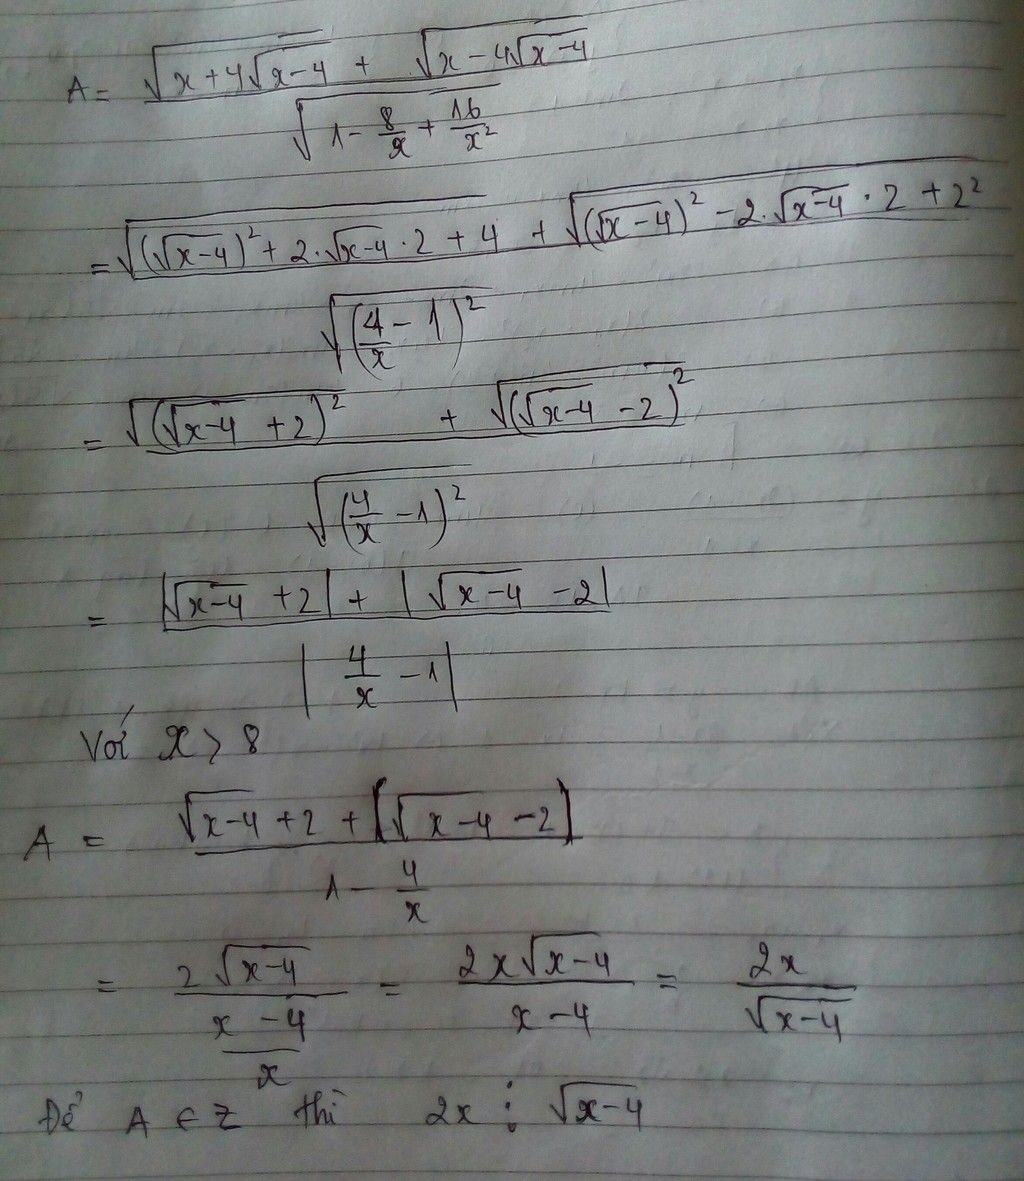 A = \frac{\sqrt{x+4\sqrt{x-4}} + \sqrt{x-4\sqrt{x-4}}}{\sqrt{1-\frac{8}{x}+\frac{16}{x^2}}}
= \frac{\sqrt{(\sqrt{x-4})^2+2.\sqrt{x-4}.2+4} + \sqrt{(\sqrt{x-4})^2-2.\sqrt{x-4}.2+2^2}}{\sqrt{(\frac{4}{x}-1)^2}}
= \frac{\sqrt{(\sqrt{x-4}+2)^2} + \sqrt{(\sqrt{x-4}-2)^2}}{\sqrt{(\frac{4}{x}-1)^2}}
= \frac{|\sqrt{x-4}+2| + |\sqrt{x-4}-2|}{|\frac{4}{x}-1|}
Với x > 8
A = \frac{\sqrt{x-4}+2+[\sqrt{x-4}-2]}{1-\frac{4}{x}}
= \frac{2\sqrt{x-4}}{\frac{x-4}{x}} = \frac{2x\sqrt{x-4}}{x-4} = \frac{2x}{\sqrt{x-4}}
Để A ∈ Z thì 2x ⋮ \sqrt{x-4}